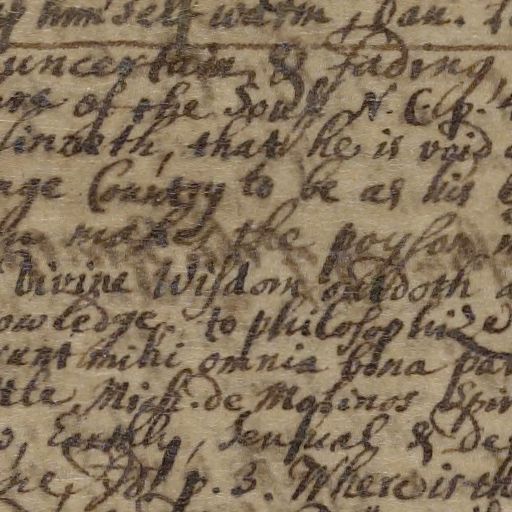 himself warm, Dan.
uncertain, & fading,
of the Soul N. C. p.
, that he is void
Country to be as his
make, the poyson
Divine Wisdom outdoth
owledge, to philosophize
unt mihi omnia bona par
Mich. de Molinos Spir
Earthly, Sensual & De
p. 3. Where is th